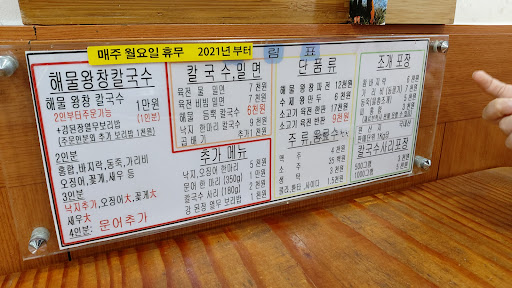 매주 월요일 휴무 2021년 부터
림 표
해물왕창칼국수
해물 왕창 칼국수 1만원
2인부터주문가능 (1인분)
+강된장열무보리밥
(주문인분외 추가 보리밥 1천원)
2인분
홍합,바지락,동죽,가리비
오징어,꽃게,새우 등
3인분
낙지추가,오징어大,꽃게大
새우大
4인분: 문어추가
칼국수,밀면
육전 물 밀면 7천원
육전 비빔 밀면 7천원
해물 듬뿍 칼국수 6천원
낙지 한마리 칼국수 9천원
곱배기 추가1천원
추가 메뉴
낙지,오징어 한마리 5천원
문어 한 마리 (350g) 1만원
칼국수 사리 (180g) 2천원
강된장 열무 보리밥 1천원
단품류
해물 왕창 파전 12천원
수제 왕만두 6천원
소고기 육전 한판 17천원
소고기 육전 반판 9천원
주류,음료수
맥주 4천원
소주 4천원
막걸리 3천원
콜라,환타,사이다 1.5천원
조개 포장
칼국수사리포장
500그램
1000그램